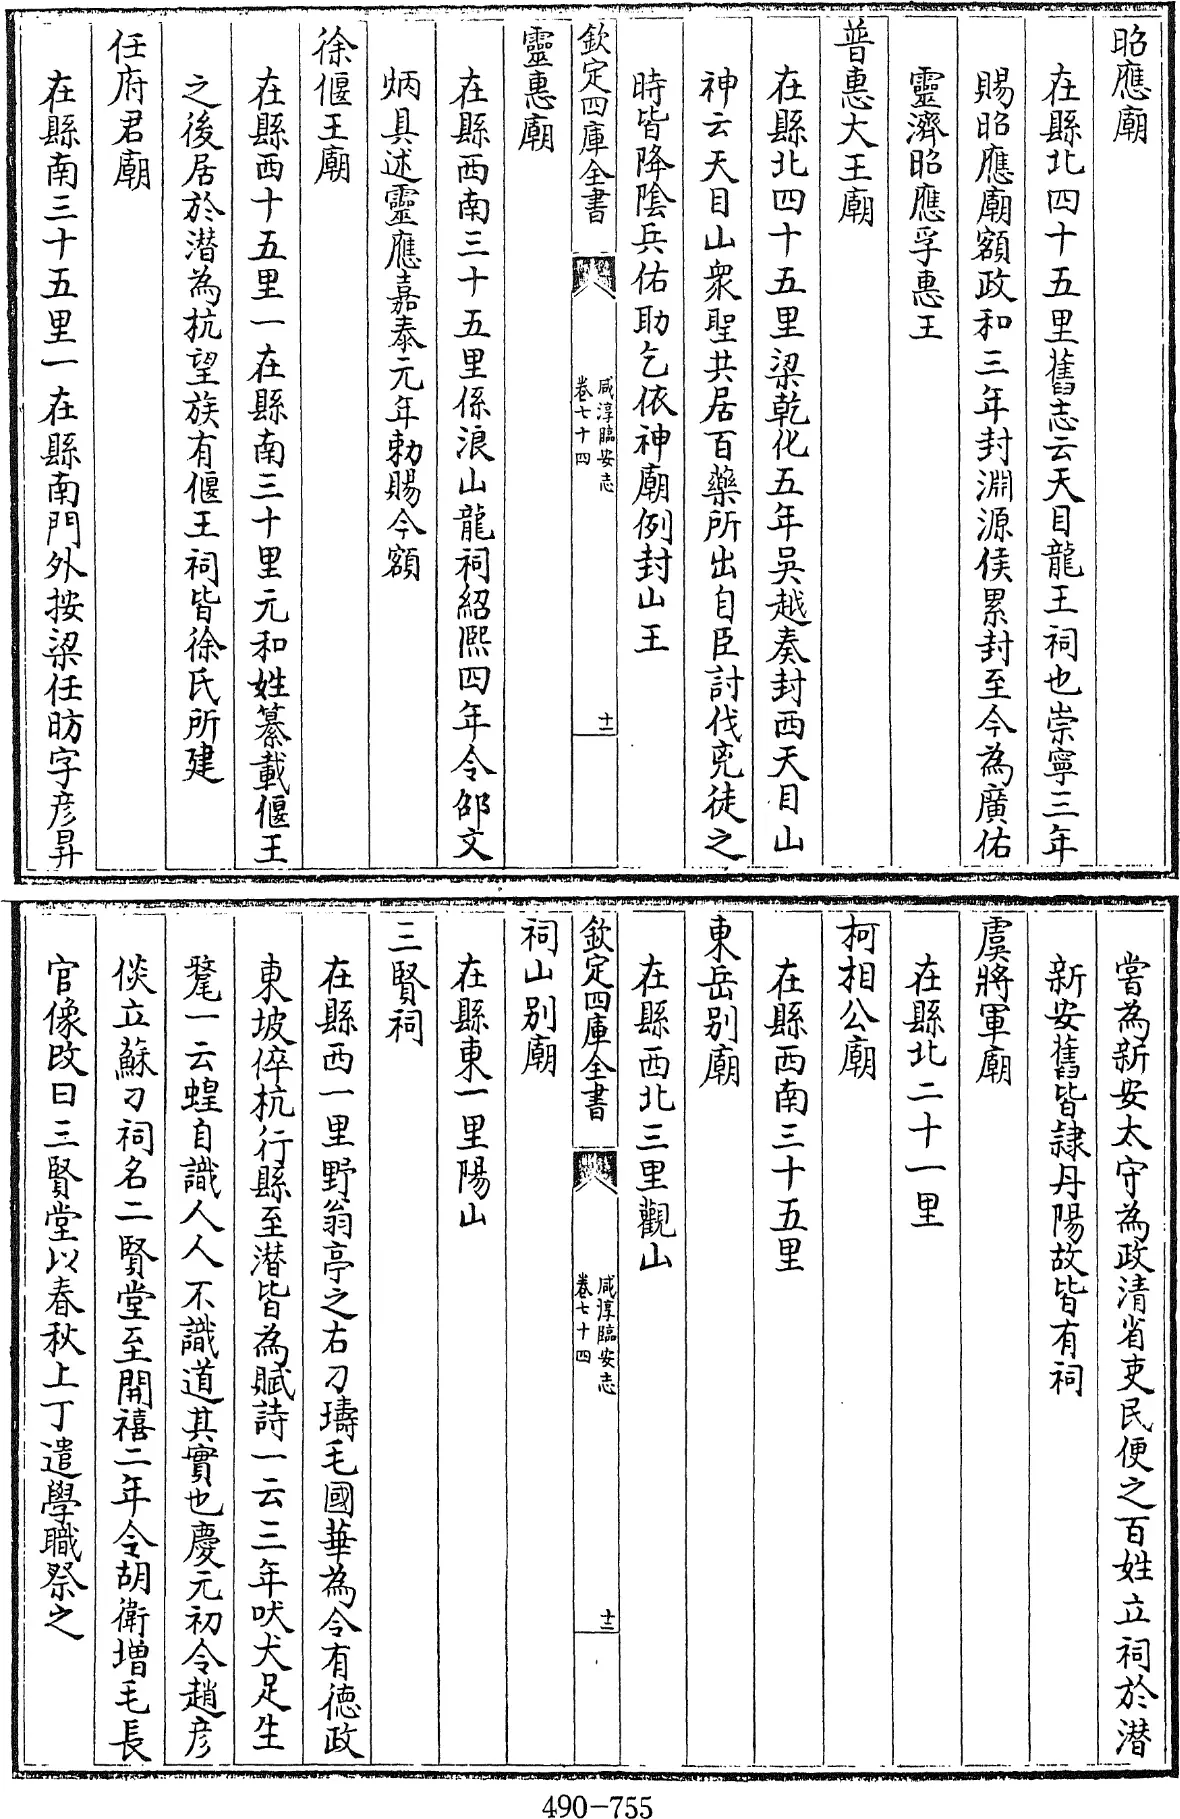 昭應廟
在縣北四十五里舊志云天目龍王祠也崇寧三年
賜昭應廟額政和三年封淵源侯累封至今為廣佑
靈濟昭應孚惠王
普惠大王廟
在縣北四十五里梁乾化五年吳越奏封西天目山
神云天目山衆聖共居百藥所出自臣討伐兇徒之
時皆降隂兵佑助乞依神廟例封山王
欽定四庫全書
咸淳臨安志
卷七十四
十二
靈惠廟
在縣西南三十五里係浪山龍祠紹熈四年令邵文
炳具述靈應嘉泰元年勅賜今額
徐偃王廟
在縣西十五里一在縣南三十里元和姓纂載偃王
之後居於潛為杭望族有偃王祠皆徐氏所建
任府君廟
在縣南三十五里一在縣南門外按梁任昉字彦昇
嘗為新安太守為政清省吏民便之百姓立祠於潛
新安舊皆隷丹陽故皆有祠
虞將軍廟
在縣北二十一里
柯相公廟
在縣西南三十五里
東岳别廟
在縣西北三里觀山
欽定四庫全書
咸淳臨安志
卷七十四
十三
祠山别廟
在縣東一里陽山
三賢祠
在縣西一里野翁亭之右刁璹毛國華為令有德政
東坡倅杭行縣至潛皆為賦詩一云三年吠犬足生
氂一云蝗自識人人不識道其實也慶元初令趙彦
倓立蘇刁祠名二賢堂至開禧二年令胡衛增毛長
官像改曰三賢堂以春秋上丁遣學職祭之
490-755